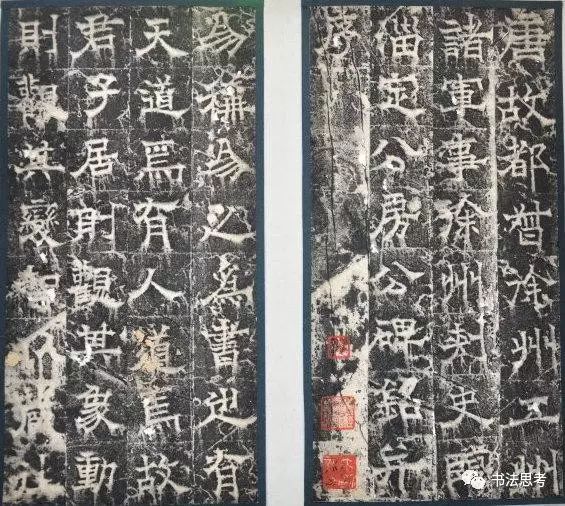 唐故都督徐州五州
諸軍事徐州刺史臨
淄定公房公碑銘并
序
易稱易之爲書也有
天道焉有人道焉故
君子居則觀其象動
則觀其變
书法思考